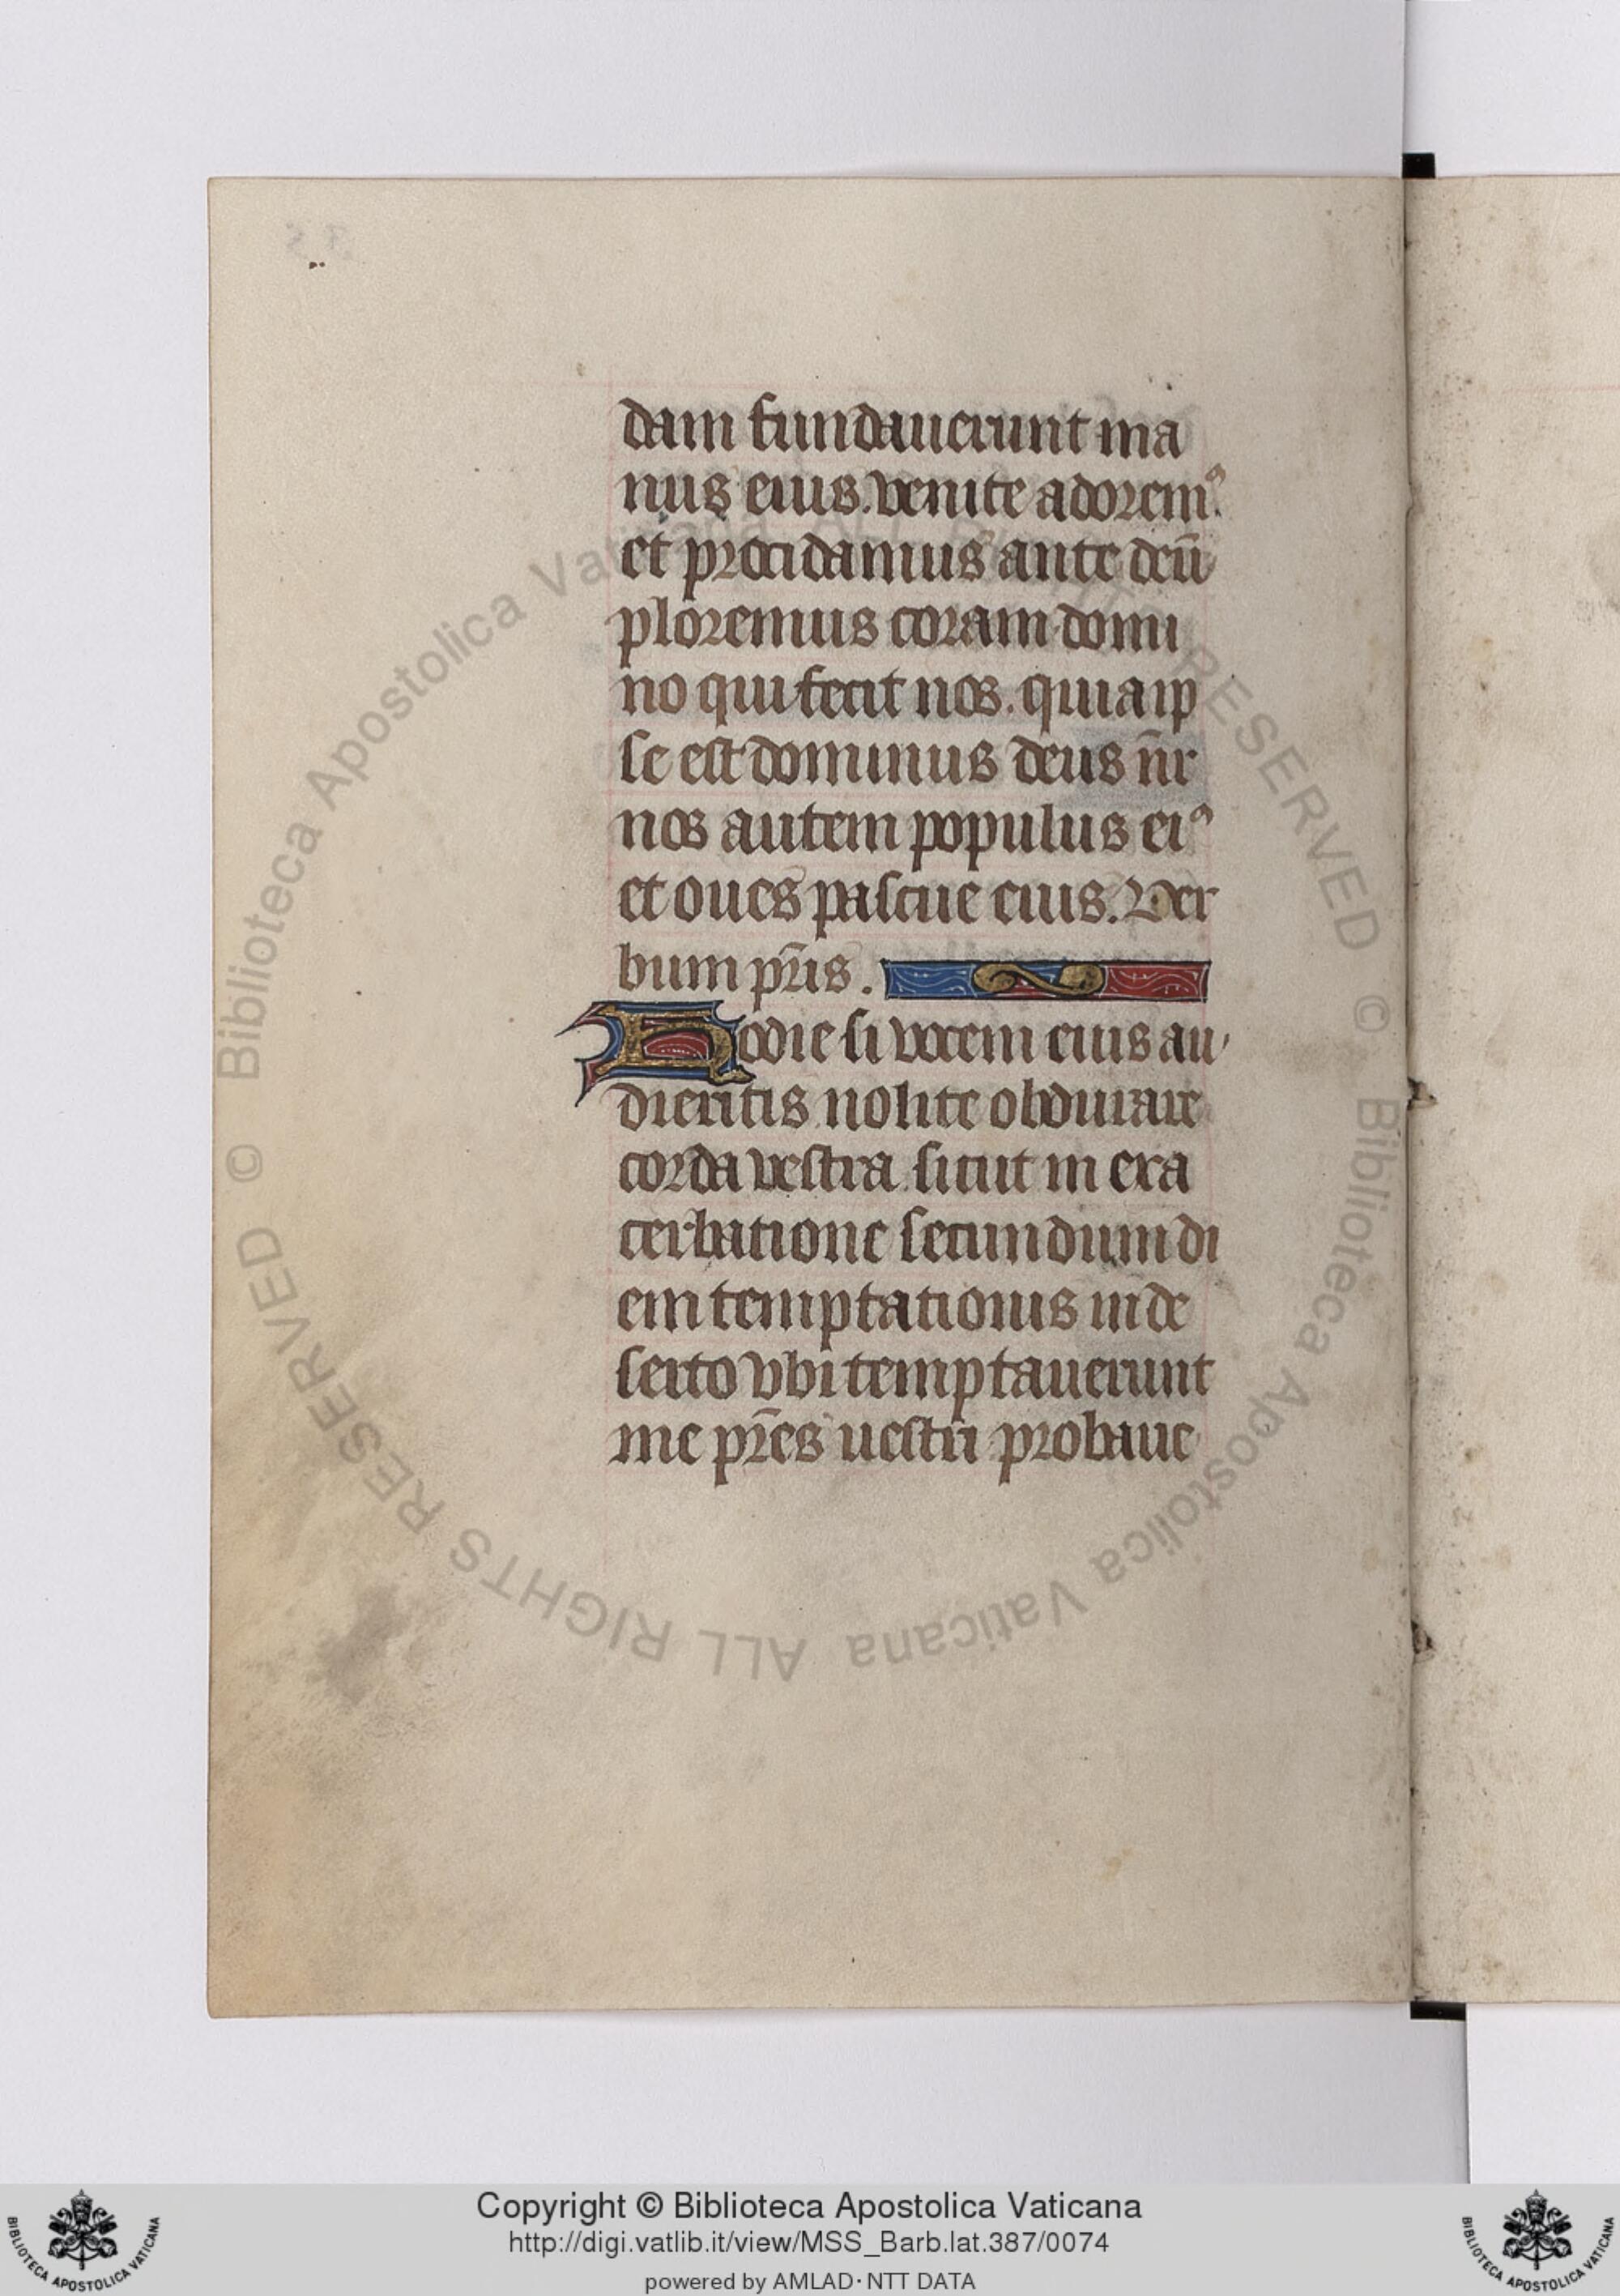 dam fundauerunt ma
nus eius. venite adoremꝰ.
et procidamus ante deū
ploremus coram domi
no qui fecit nos. quia ip
se est dominus deus n̄r
nos autem populus eiꝰ
et oues pascue eius. Ver
bum pr̄is.
Hodie si vocem eius au
dieritis nolite obdurare
corda vestra sicut in exa
cerbatione secundum di
em temptationis in de
serto vbi temptauerunt
me pr̄es uestri probaue
© Biblioteca Apostolica Vaticana ALL RIGHTS RESERVED
© Biblioteca Apostolica Vaticana ALL RIGHTS RESERVED
Copyright © Biblioteca Apostolica Vaticana
http://digi.vatlib.it/view/MSS_Barb.lat.387/0074
powered by AMLAD·NTT DATA
BIBLIOTECA APOSTOLICA VATICANA
BIBLIOTECA APOSTOLICA VATICANA